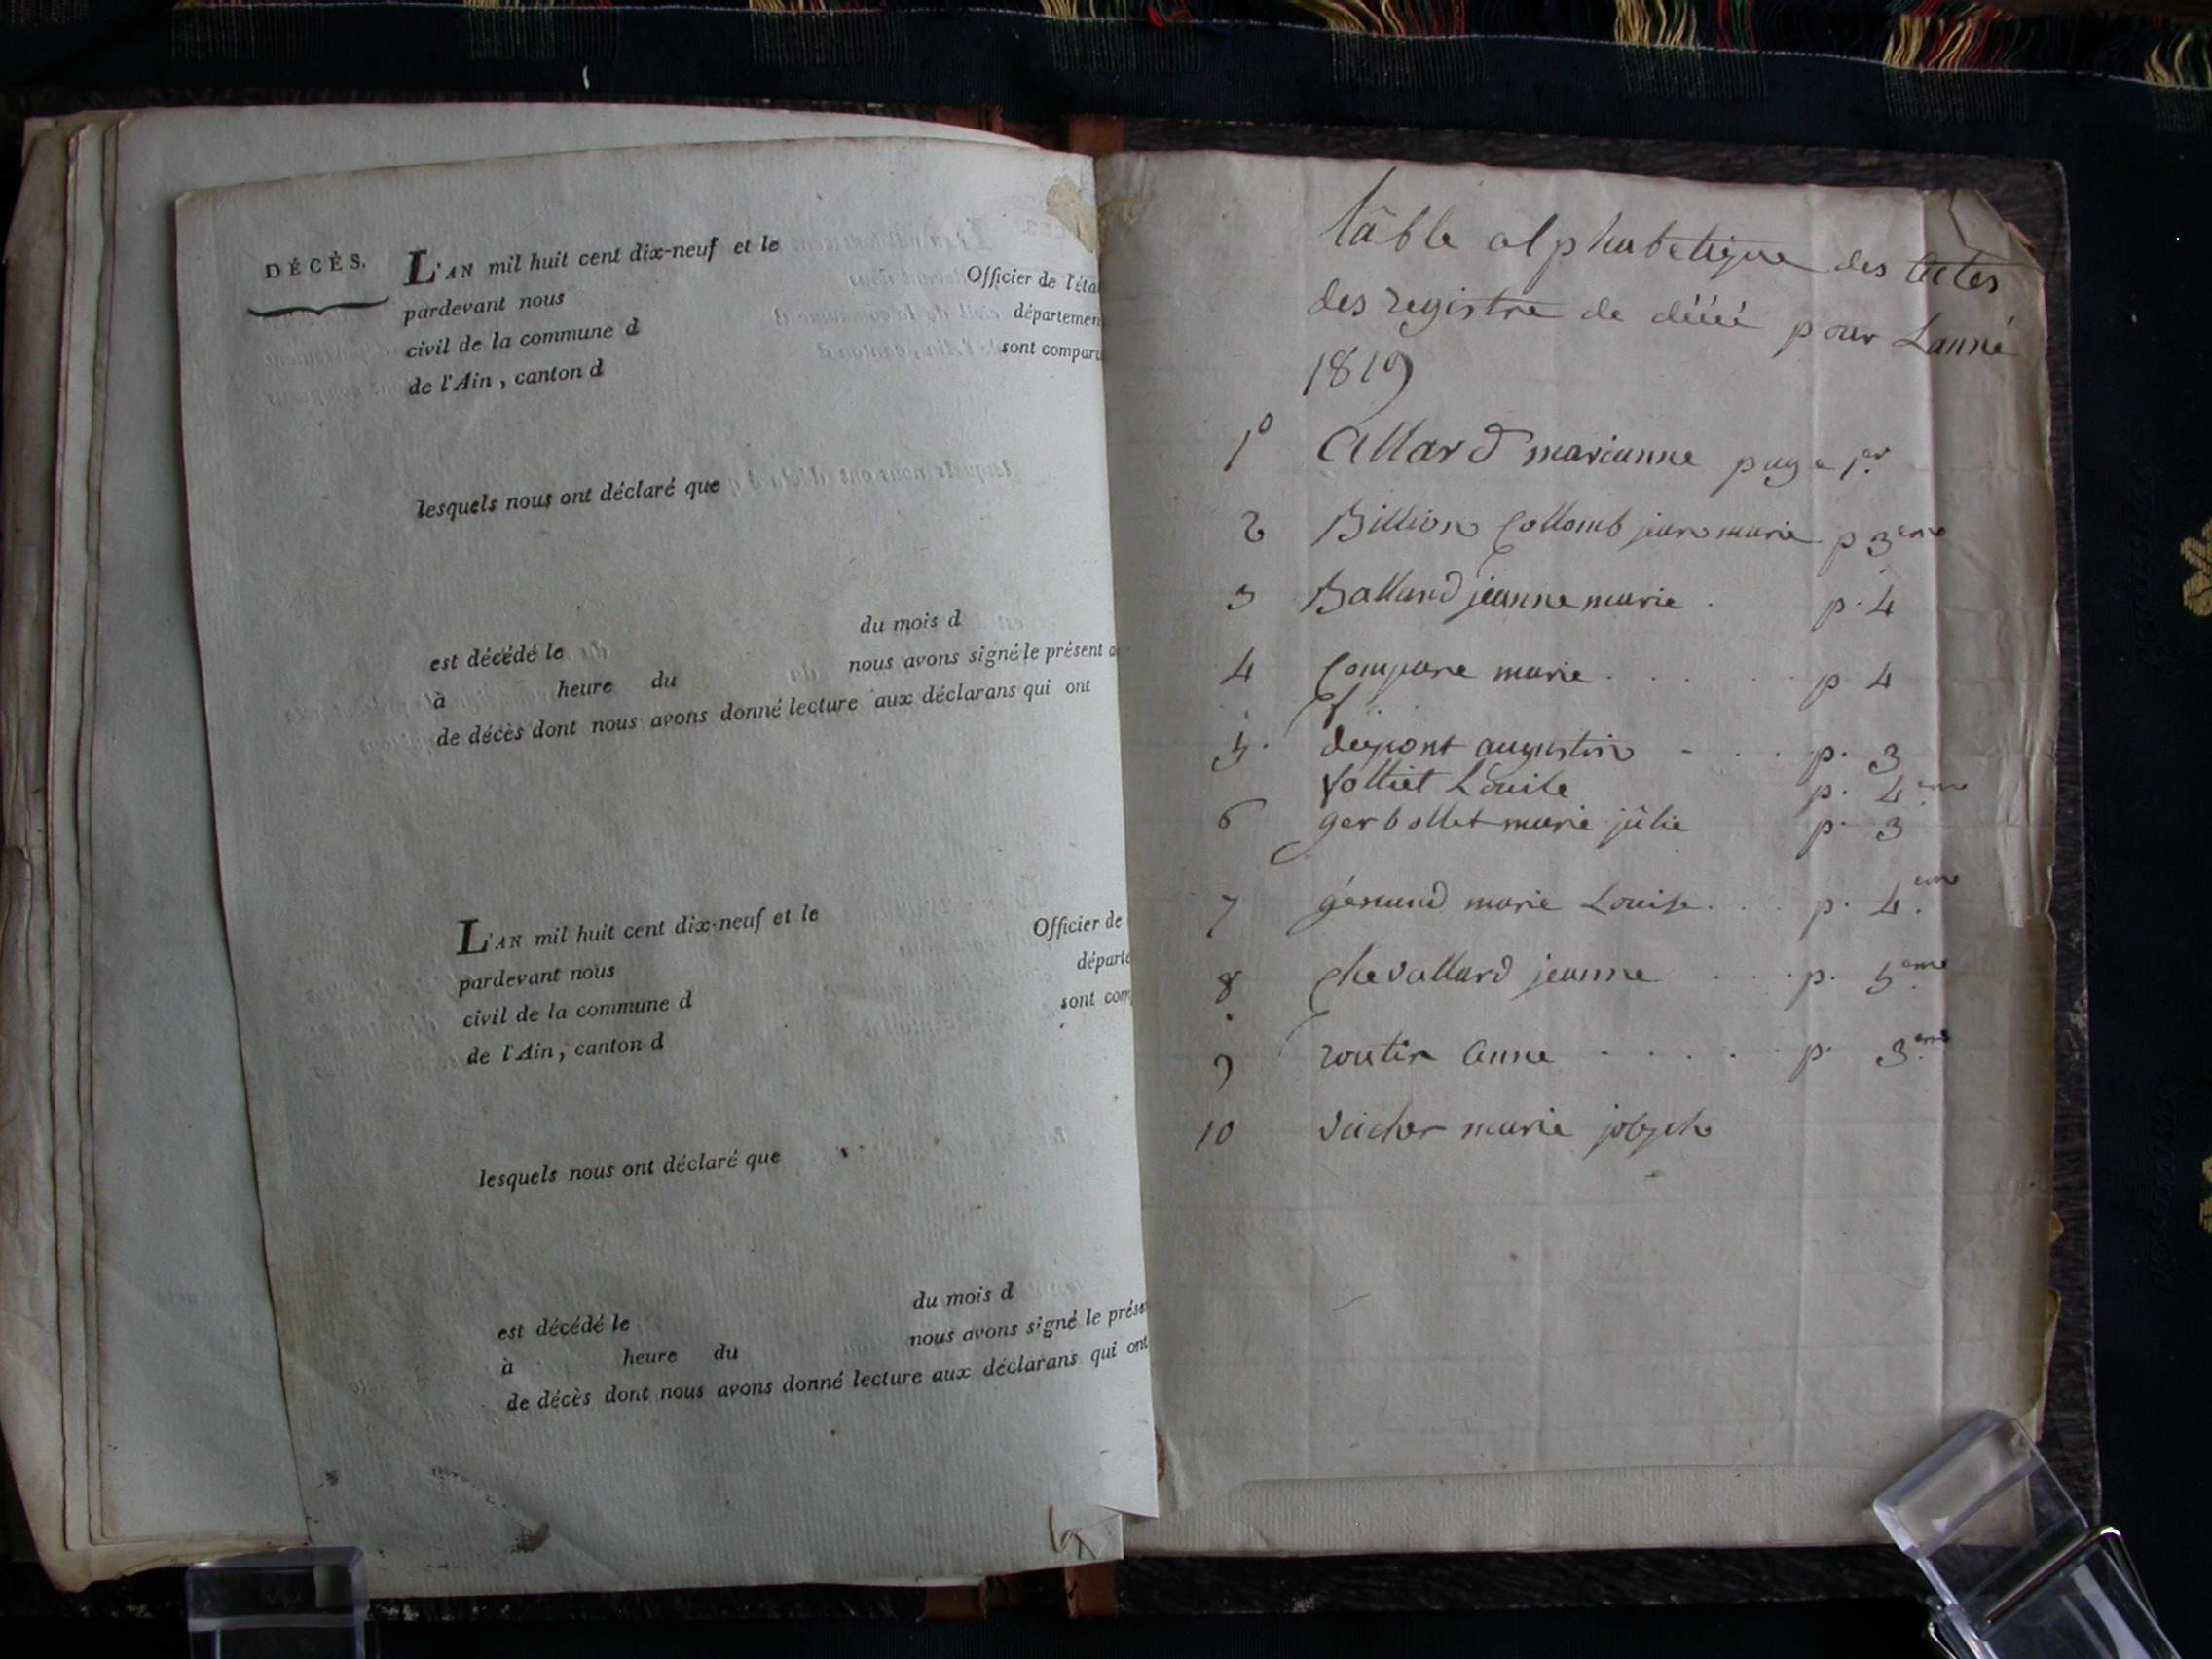 DÉCÈS.
L'AN mil huit cent dix-neuf et le
pardevant nous Officier de l'éta
civil de la commune d départemen
de l'Ain, canton d sont comparu
lesquels nous ont déclaré que
est décédé le du mois d
à heure du nous avons signé le présent a
de décès dont nous avons donné lecture aux déclarans qui ont
L'AN mil huit cent dix-neuf et le
pardevant nous Officier de
civil de la commune d départe
de l'Ain, canton d sont com
lesquels nous ont déclaré que
est décédé le du mois d
à heure du nous avons signé le prése
de décès dont nous avons donné lecture aux déclarans qui ont
tâble alphabetique des actes
des registre de pour Lanné
1819
1º allard marianne page 1.er
2 Billion Collomb jean marie p 3eme
3 Balland jeanne marie . p. 4
4 Compare marie . . . . p 4
5. dupont augustin - . . . p. 3
folliet Louise p. 4.eme
6 gerbollet marie jûlie p. 3
7 marie Louise . . . p. 4.eme
8 chevallard jeanne . . . p. 5.eme
9 routin anne . . . . . p. 3.eme
10 marie joseph